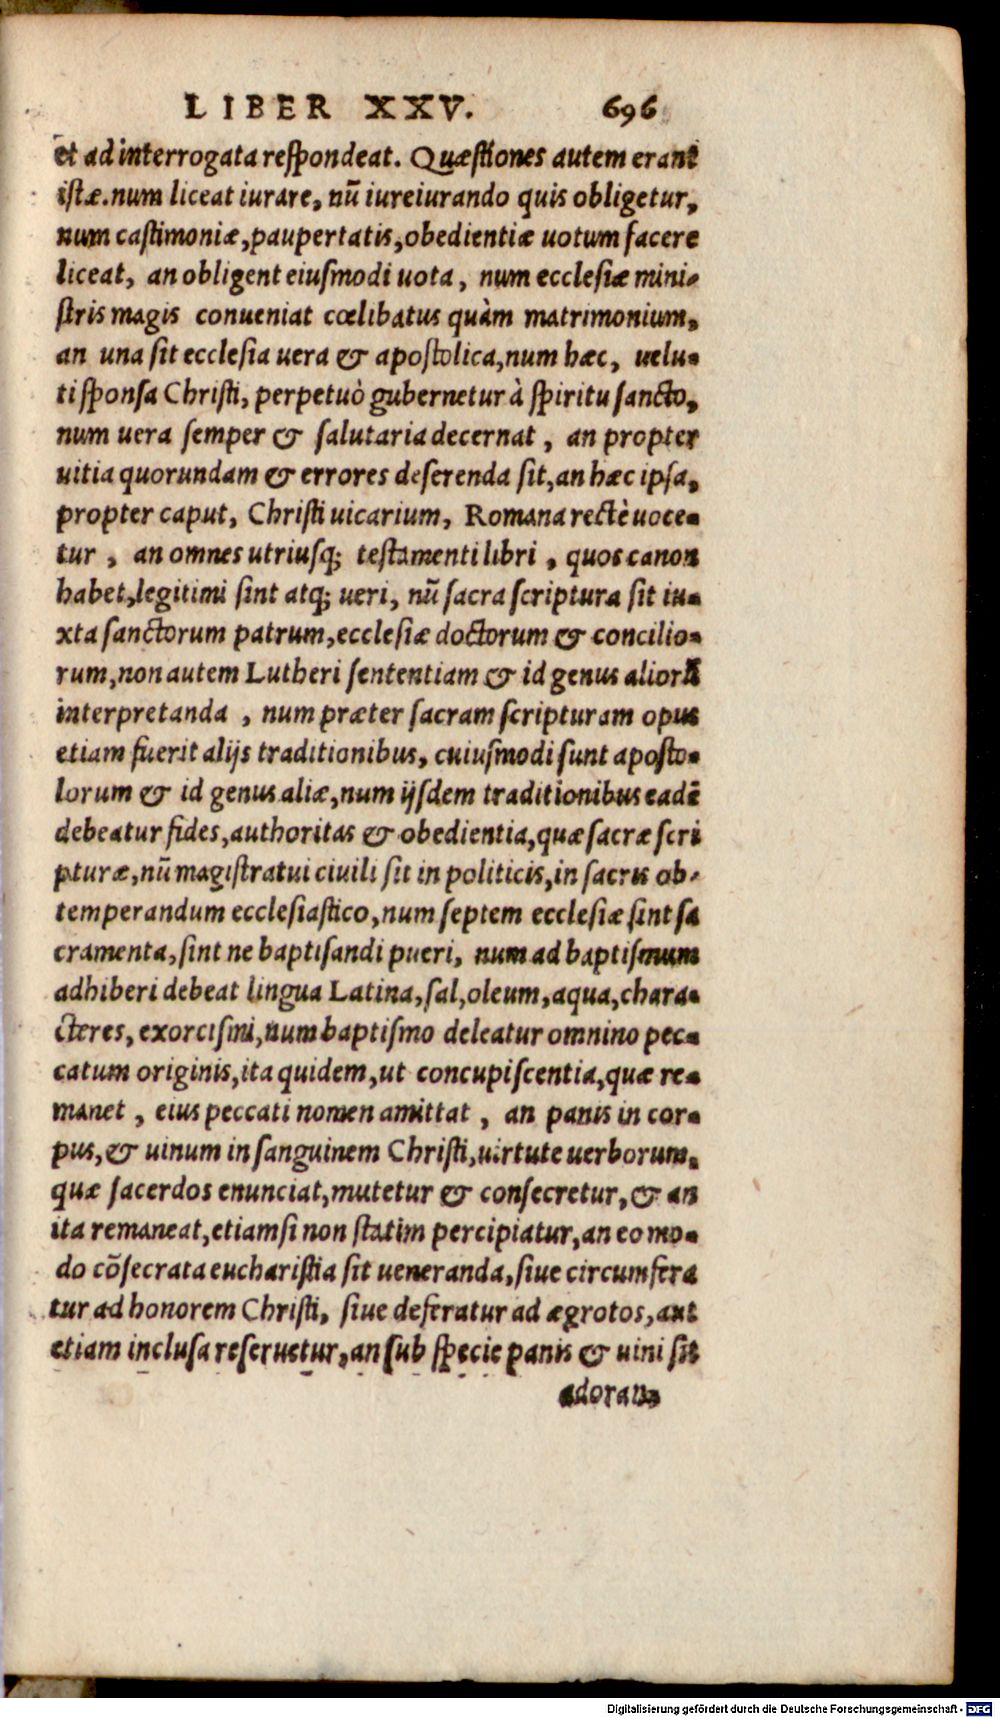 LIBER XXV. 696
et ad interrogata respondeat. Quæstiones autem erant
istæ. num liceat iurare, nū iureiurando quis obligetur,
num castimoniæ, paupertatis, obedientiæ uotum facere
liceat, an obligent eiusmodi uota, num ecclesiæ mini-
stris magis conueniat cœlibatus quàm matrimonium,
an una sit ecclesia uera & apostolica, num hæc, uelu-
ti sponsa Christi, perpetuò gubernetur à spiritu sancto,
num uera semper & salutaria decernat, an propter
uitia quorundam & errores deserenda sit, an hæc ipsa,
propter caput, Christi uicarium, Romana rectè uoce-
tur, an omnes utriusq; testamenti libri, quos canon
habet, legitimi sint atq; ueri, nū sacra scriptura sit iu-
xta sanctorum patrum, ecclesiæ doctorum & concilio-
rum, non autem Lutheri sententiam & id genus aliorū
interpretanda, num præter sacram scripturam opus
etiam fuerit alijs traditionibus, cuiusmodi sunt aposto-
lorum & id genus aliæ, num ijsdem traditionibus eadē
debeatur fides, authoritas & obedientia, quæ sacræ scri
pturæ, nū magistratui ciuili sit in politicis, in sacris ob-
temperandum ecclesiastico, num septem ecclesiæ sint sa
cramenta, sint ne baptisandi pueri, num ad baptismum
adhiberi debeat lingua Latina, sal, oleum, aqua, chara-
cteres, exorcismi, num baptismo deleatur omnino pec-
catum originis, ita quidem, ut concupiscentia, quæ re-
manet, eius peccati nomen amittat, an panis in cor-
pus, & uinum in sanguinem Christi, uirtute uerborum,
quæ sacerdos enunciat, mutetur & consecretur, & an
ita remaneat, etiamsi non statim percipiatur, an eo mo-
do cōsecrata eucharistia sit ueneranda, siue circumfera
tur ad honorem Christi, siue deferatur ad ægrotos, aut
etiam inclusa reseruetur, an sub specie panis & uini sit
adoran-
Digitalisierung gefördert durch die Deutsche Forschungsgemeinschaft - DFG